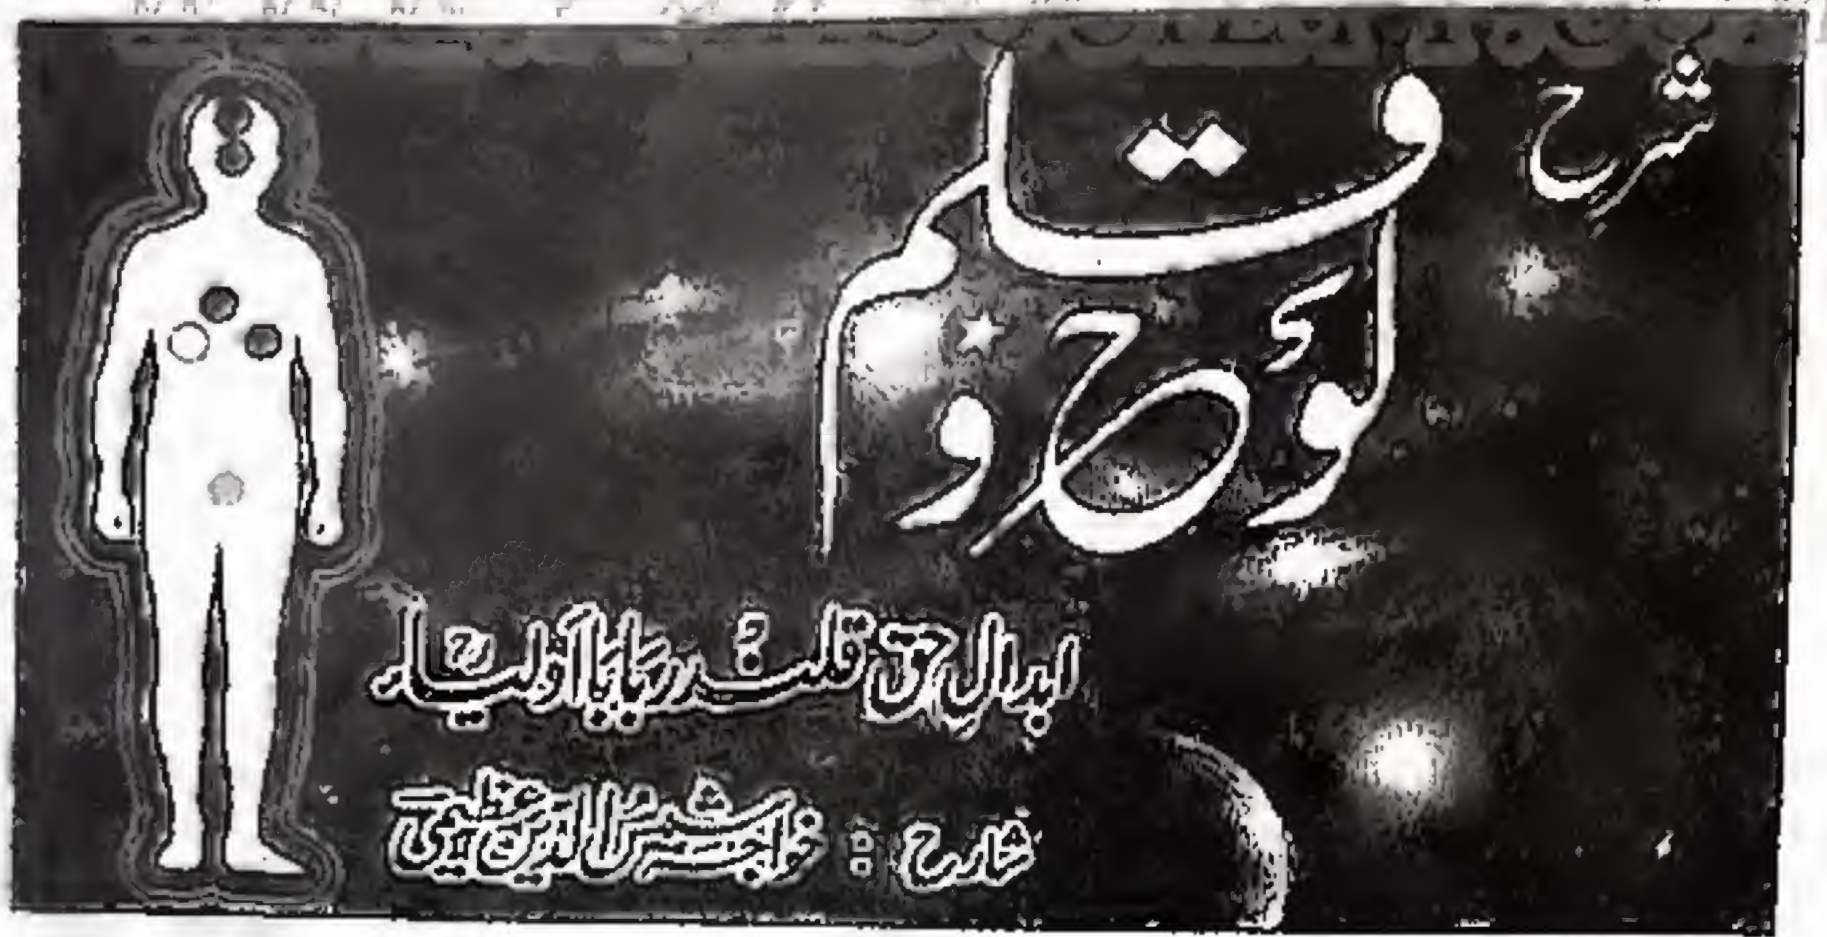 شرح
لوح و قلم
ابدالِ حق قلندر بابا اولیاء
شارح : خواجہ شمس الدین عظیمی